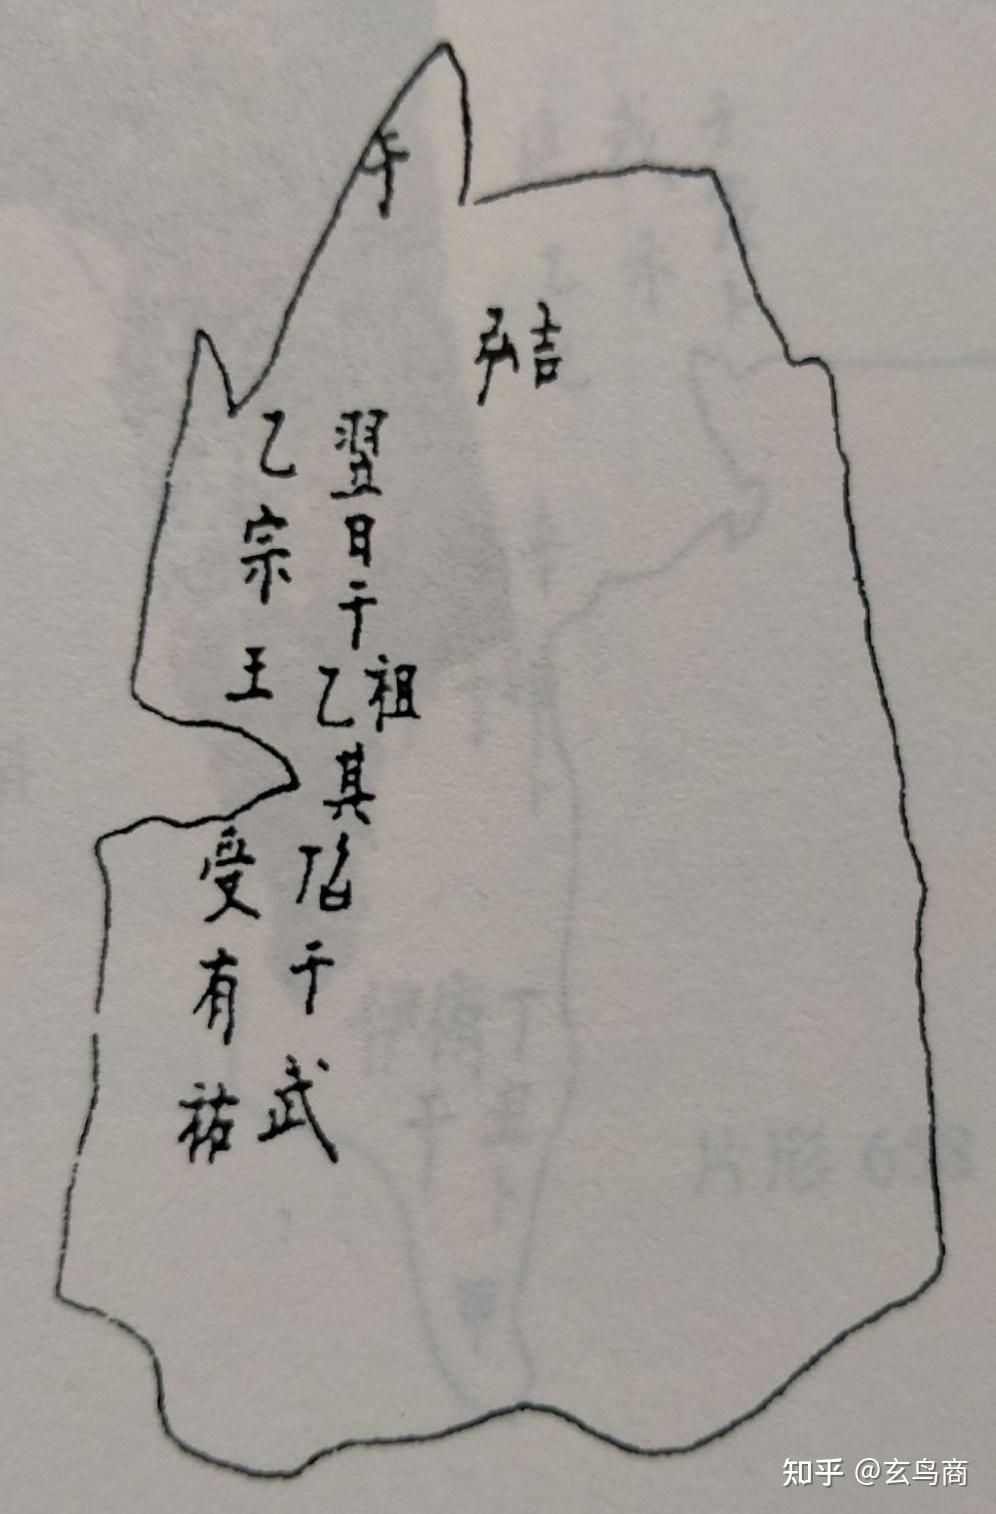 弘吉
翌日于祖乙其于武
乙宗王受有祐
知乎 @玄鸟商